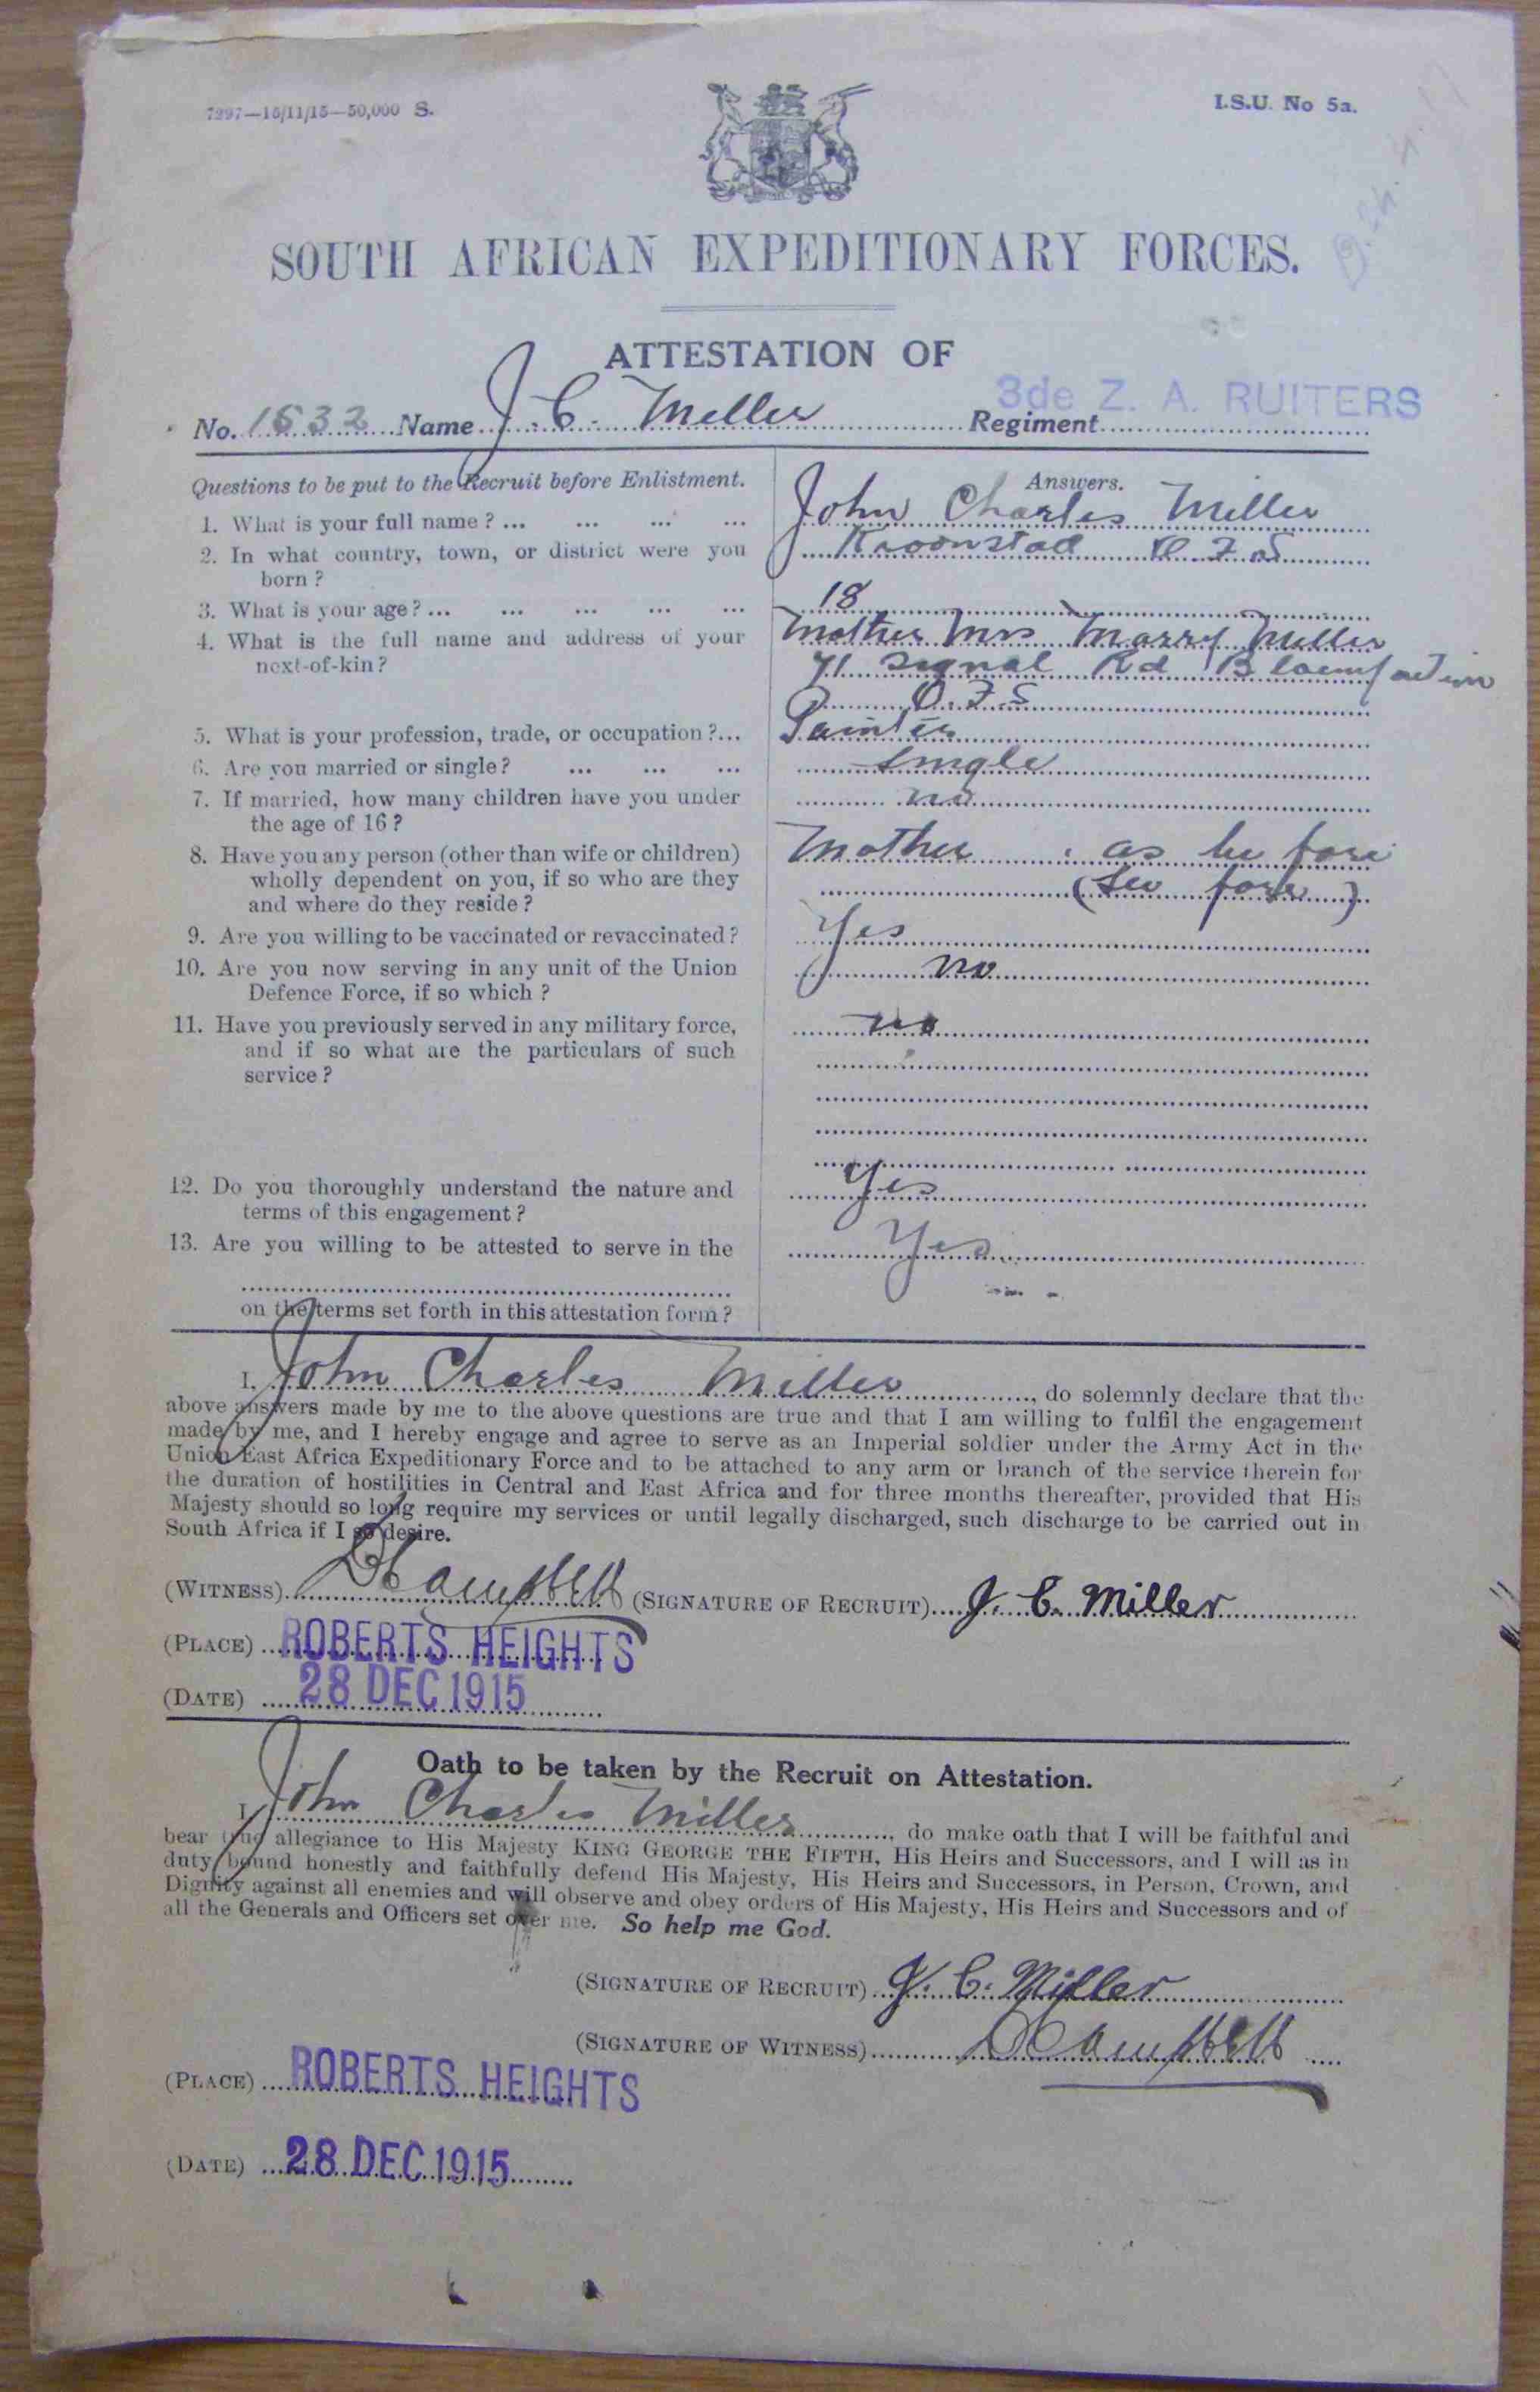 7297—15/11/15—50,000 S.
I.S.U. No 5a.
SOUTH AFRICAN EXPEDITIONARY FORCES.
ATTESTATION OF
3de Z. A. RUITERS
No. 1632 Name J. C. Miller Regiment
Questions to be put to the Recruit before Enlistment. Answers.
1. What is your full name? ... ... ... ... John Charles Miller
2. In what country, town, or district were you Kroonstad O F S
born?
3. What is your age? ... ... ... ... ... 18
4. What is the full name and address of your Mother Mrs Marry Miller
next-of-kin? 71 Signal Rd
O. F. S
5. What is your profession, trade, or occupation?... Painter
6. Are you married or single? ... ... ... Single
7. If married, how many children have you under no
the age of 16?
8. Have you any person (other than wife or children) Mother as be fore
wholly dependent on you, if so who are they
and where do they reside?
9. Are you willing to be vaccinated or revaccinated? Yes
10. Are you now serving in any unit of the Union no
Defence Force, if so which?
11. Have you previously served in any military force, no
and if so what are the particulars of such
service?
12. Do you thoroughly understand the nature and Yes
terms of this engagement?
13. Are you willing to be attested to serve in the Yes
on the terms set forth in this attestation form?
I, John Charles Miller, do solemnly declare that the
above answers made by me to the above questions are true and that I am willing to fulfil the engagement
made by me, and I hereby engage and agree to serve as an Imperial soldier under the Army Act in the
Union East Africa Expeditionary Force and to be attached to any arm or branch of the service therein for
the duration of hostilities in Central and East Africa and for three months thereafter, provided that His
Majesty should so long require my services or until legally discharged, such discharge to be carried out in
South Africa if I so desire.
(WITNESS) DCampbell (SIGNATURE OF RECRUIT) J. C. Miller
(PLACE) ROBERTS HEIGHTS
(DATE) 28 DEC 1915
Oath to be taken by the Recruit on Attestation.
I, John Charles Miller, do make oath that I will be faithful and
bear true allegiance to His Majesty KING GEORGE THE FIFTH, His Heirs and Successors, and I will as in
duty bound honestly and faithfully defend His Majesty, His Heirs and Successors, in Person, Crown, and
Dignity against all enemies and will observe and obey orders of His Majesty, His Heirs and Successors and of
all the Generals and Officers set over me. So help me God.
(SIGNATURE OF RECRUIT) J. C. Miller
(SIGNATURE OF WITNESS) DCampbell
(PLACE) ROBERTS HEIGHTS
(DATE) 28 DEC 1915